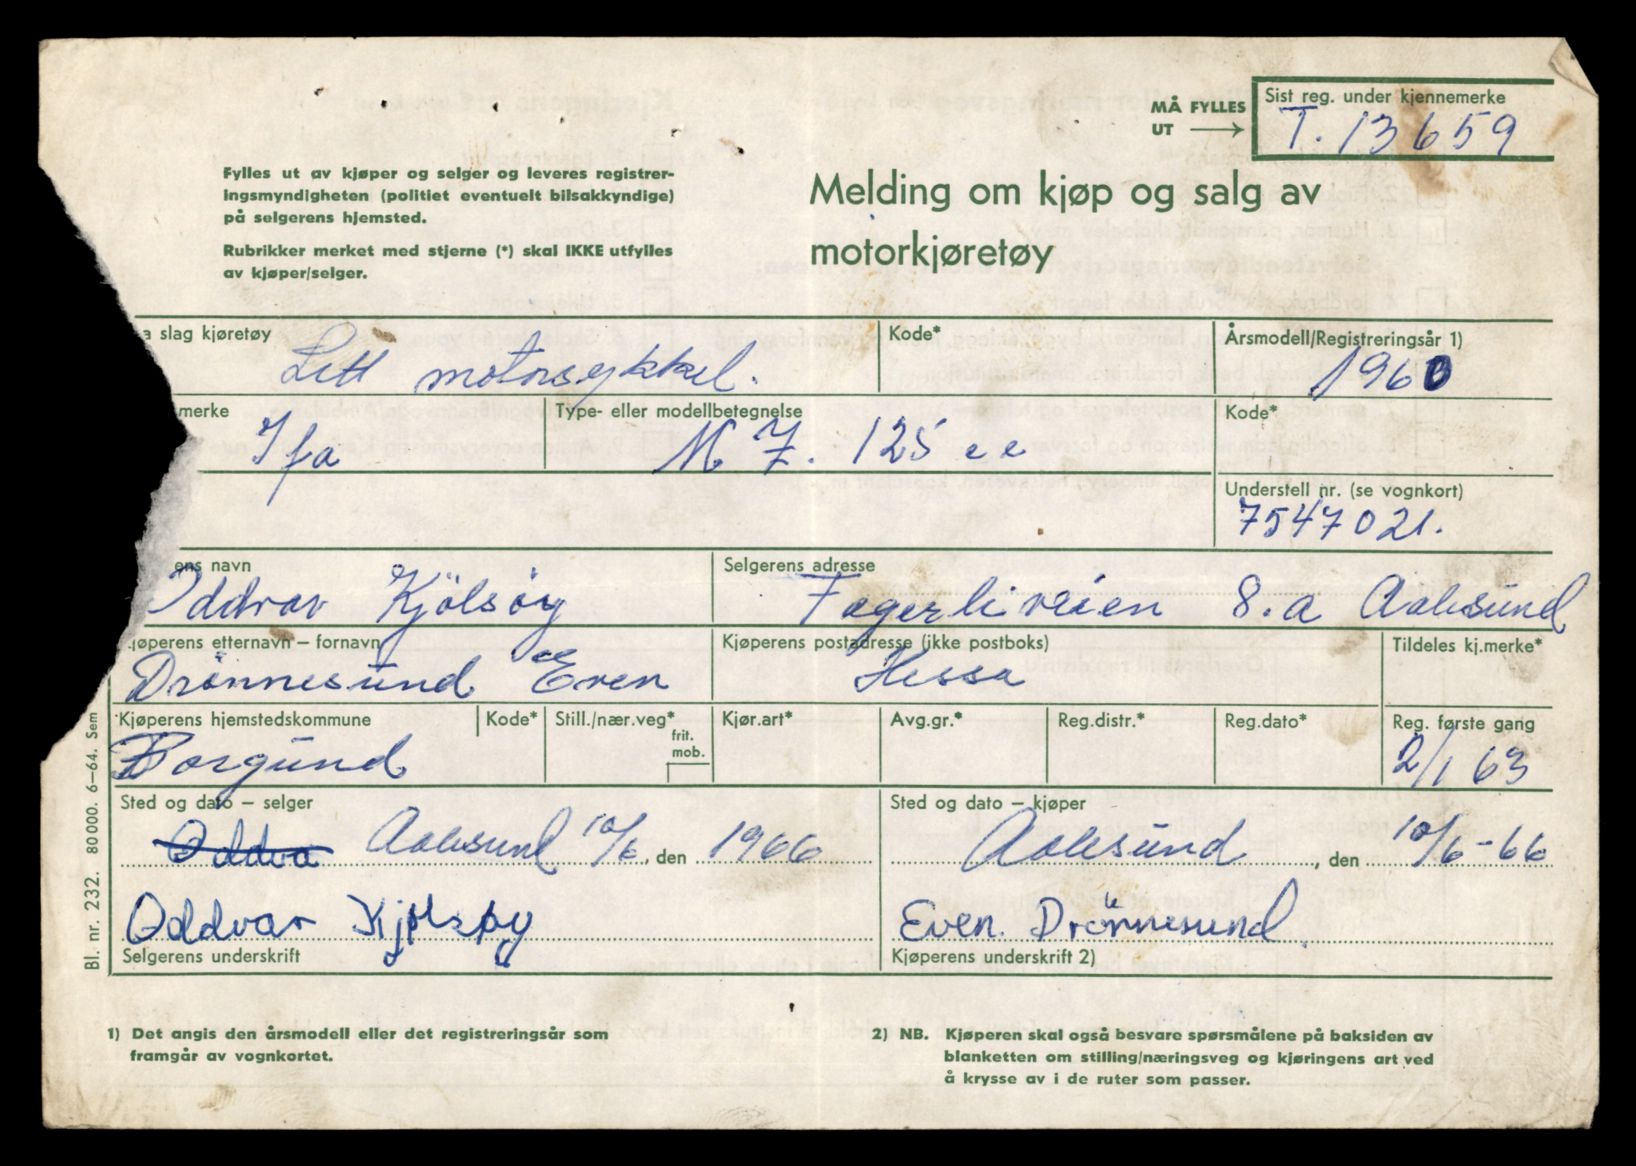 MÅ FYLLES UT →
Sist reg. under kjennemerke
T. 13659
Fylles ut av kjøper og selger og leveres registrer-
ingsmyndigheten (politiet eventuelt bilsakkyndige)
på selgerens hjemsted.
Rubrikker merket med stjerne (*) skal IKKE utfylles
av kjøper/selger.
Melding om kjøp og salg av
motorkjøretøy
a slag kjøretøy
Lett motorsykkel.
Kode*
Årsmodell/Registreringsår 1)
1960
smerke
Ifa
Type- eller modellbetegnelse
M Z. 125 cc
Kode*
Understell nr. (se vognkort)
7547021.
ens navn
Oddvar Kjölsöy
Selgerens adresse
Fagerliveien 8.a Aalesund
Kjøperens etternavn – fornavn
Drönnesund Even
Kjøperens postadresse (ikke postboks)
Hessa
Tildeles kj.merke*
Kjøperens hjemstedskommune
Borgund
Kode*
Still./nær.veg*
frit.
mob.
Kjør.art*
Avg.gr.*
Reg.distr.*
Reg.dato*
Reg. første gang
2/1 63
Sted og dato – selger
Oddva Aalesund 10/6, den 1966
Sted og dato – kjøper
Aalesund, den 10/6-66
Oddvar Kjølsøy
Selgerens underskrift
Even. Drönnesund
Kjøperens underskrift 2)
Bl. nr. 232. 80000. 6–64. Sem
1) Det angis den årsmodell eller det registreringsår som
framgår av vognkortet.
2) NB. Kjøperen skal også besvare spørsmålene på baksiden av
blanketten om stilling/næringsveg og kjøringens art ved
å krysse av i de ruter som passer.